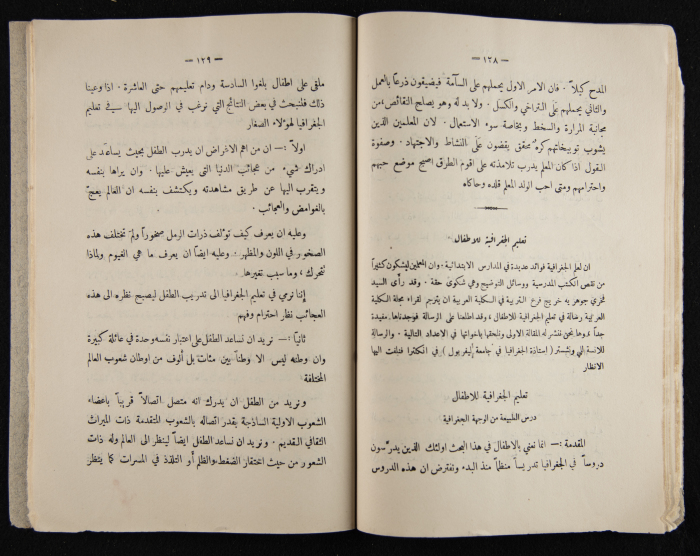 — ١٣٨ —
المدح كيلاً . فان الامر الاول يحملهم على السآمة فيضيقون ذرعاً بالعمل
والثاني يحملهم على التراخي والكسل . ولا بد له وهو يصلح النقائص من
مجانبة المرارة والسخط وبخاصة سوء الاستعمال . لان المعلمين الذين
يشوب توبيخاتهم كره محقق يقضون على النشاط والاجتهاد . وصفوة
القول اذا كان المعلم يدرب تلامذته على اقوم الطرق اصبح موضع حبهم
واحترامهم ومتى احب الولد المعلم قلده وحاكاه
تعليم الجغرافية للاطفال
ان لعلم الجغرافية فوائد عديدة في المدارس الابتدائية . وان المعلمين ليشكون كثيراً
من نقص الكتب المدرسية ووسائل التوضيح وهي شكوى حقة . وقد رأى السيد
فخري جوهريه خريج فرع التربية في الكلية العربية ان يترجم لقراء مجلة الكلية
العربية رسالة في تعليم الجغرافية للاطفال ، وقد اطلعنا على الرسالة فوجدناها مفيدة
جداً ، وها نحن ننشر له المقالة الاولى ونلحقها باخواتها في الاعداد التالية . والرسالة
للانسة الي ونشستر ( استاذة الجغرافيا في جامعة ليفربول ) في انكلترا فنلفت اليها
الانظار
تعليم الجغرافية للاطفال
درس الطبيعة من الوجهة الجغرافية
المقدمة :— انما نعني بالاطفال في هذا البحث اولئك الذين يدرسون
دروساً في الجغرافيا تدريساً منظماً منذ البدء ونفترض ان هذه الدروس
— ١٣٩ —
ملقى على اطفال بلغوا السادسة ودام تعليمهم حتى العاشرة . اذا وعينا
ذلك فلنبحث في بعض النتائج التي نرغب في الوصول اليها في تعليم
الجغرافيا لهؤلاء الصغار
اولاً :— ان من اهم الاغراض ان يدرب الطفل بحيث يساعد على
ادراك شيء من عجائب الدنيا التي يعيش عليها . وان يراها بنفسه
ويتقرب اليها عن طريق مشاهدته ويكتشف بنفسه ان العالم يعج
بالغوامض والعجائب .
وعليه ان يعرف كيف تؤلف ذرات الرمل صخوراً ولم تختلف هذه
الصخور في اللون والمظهر . وعليه ايضاً ان يعرف ما هي الغيوم ولماذا
تتحرك ، وما سبب تغيرها .
إننا نرمي في تعليم الجغرافيا الى تدريب الطفل ليصبح نظره الى هذه
العجائب نظر احترام وفهم
ثانياً :— نريد ان نساعد الطفل على اعتبار نفسه وحدة في عائلة كبيرة
وان وطنه ليس الا وطناً بين مئات بل ألوف من اوطان شعوب العالم
المختلفة
ونريد من الطفل ان يدرك انه متصل اتصالاً قريباً باعضاء
الشعوب الاولية الساذجة بقدر اتصاله بالشعوب المتقدمة ذات الميراث
الثقافي القديم . ونريد ان نساعد الطفل ايضاً لينظر الى العالم وله ذات
الشعور من حيث احتقار الضغط والظلم أو التلذذ في المسرات كما ينتظر